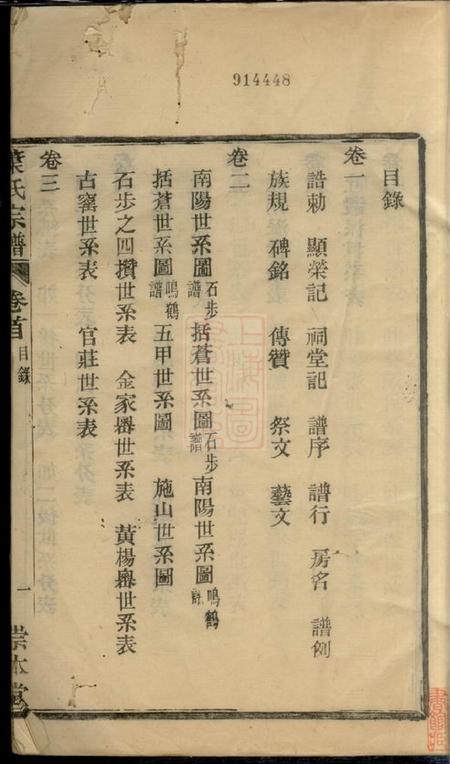 914448
目錄
卷一
誥勅 顯榮記 祠堂記 譜序 譜行 房名 譜例
族規 碑銘 傳贊 祭文 藝文
卷二
南陽世系圖石步譜 括蒼世系圖石步譜 南陽世系圖鳴鶴譜
括蒼世系圖鳴鶴譜 五甲世系圖 施山世系圖
石步之四攢世系表 金家嶴世系表 黃楊嶴世系表
古窰世系表 官莊世系表
卷三
葉氏宗譜 卷首 目錄 一 崇本堂